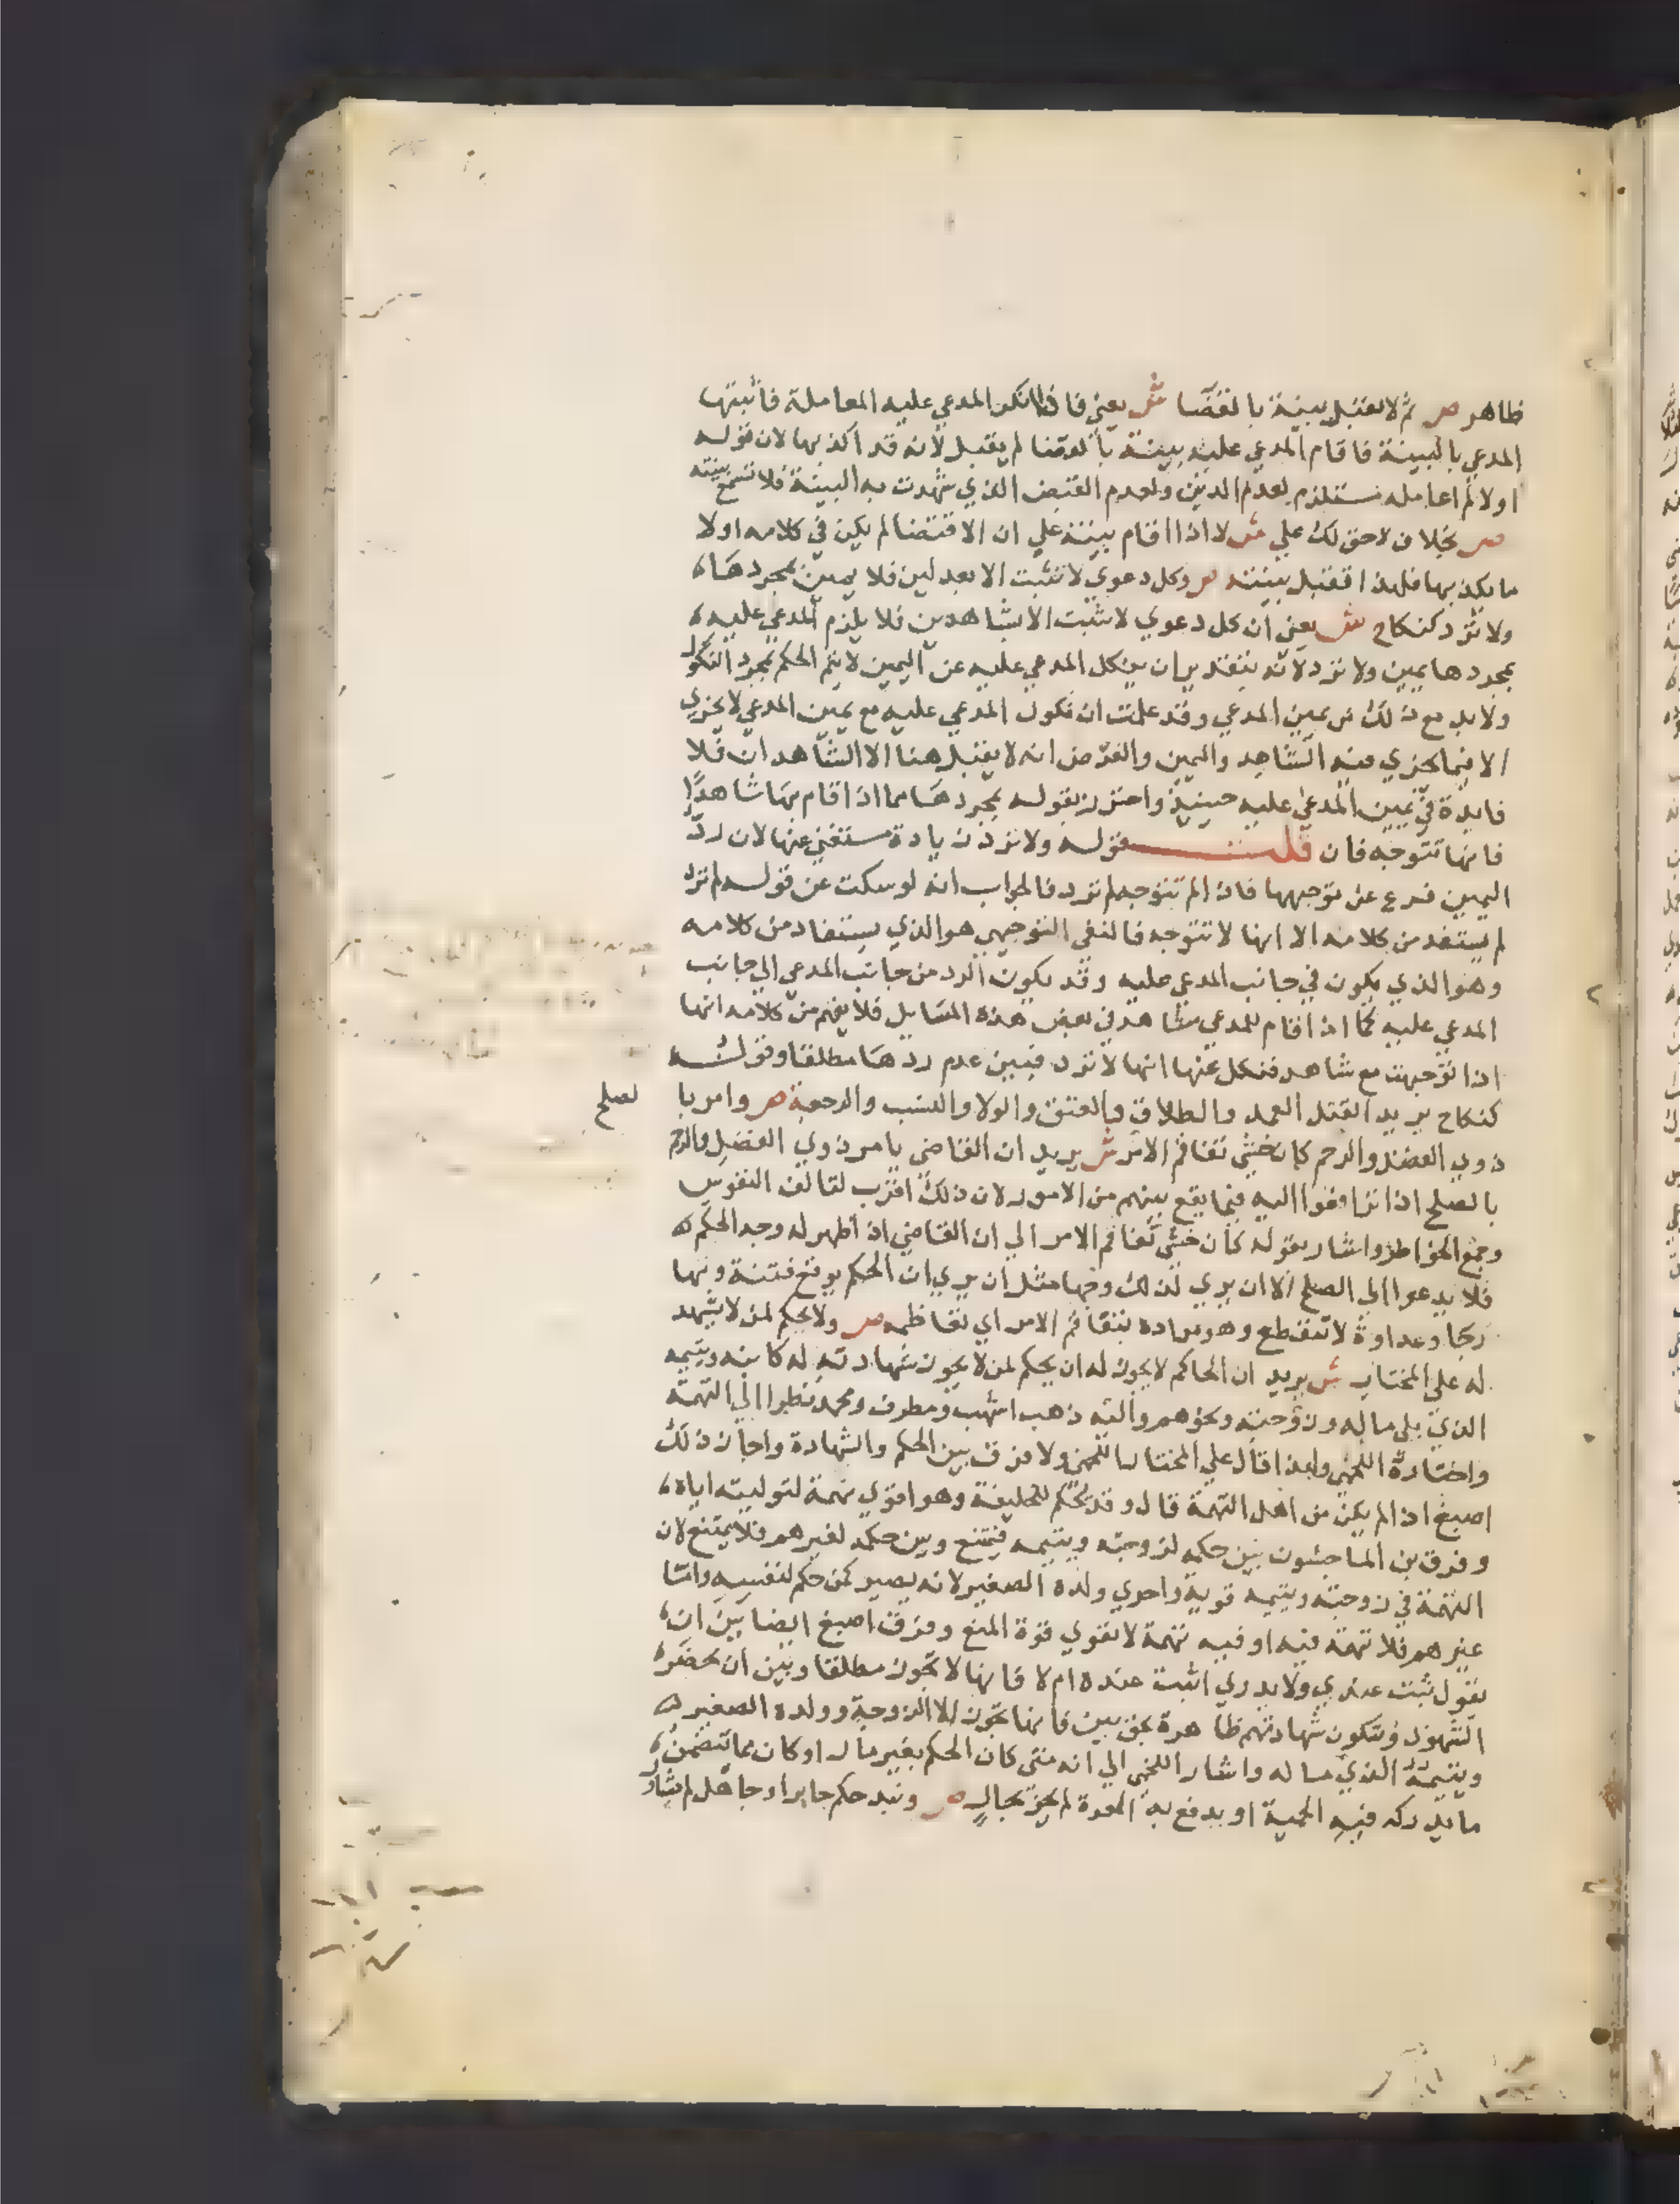 ظاهر ص ثم لا يقبل بينة بالقضا ش يعني فاذا انكر المدعي عليه المعاملة فأثبتها
المدعي بالبينة فاقام المدعي عليه بينة بالقضا لم يقبل لأنه قد اكذبها لان قوله
اولا لم اعامله مستلزم لعدم الدين ولعدم القبض الذي شهدت به البينة فلا تسمع بينته
ص بخلاف لا حق لك علي ش لا اذا اقام بينة علي ان الاقتضا لم يكن في كلامه اولا
ما يكذبها فلهذا تقبل بينته ص وكل دعوي لا تثبت الا بعدلين فلا يمين بمجردها
ولا ترد كنكاح ش يعني أن كل دعوي لا تثبت الا بشاهدين فلا يلزم المدعي عليه
بمجردها يمين ولا ترد لأنه بتقدير ان ينكل المدعي عليه عن اليمين لا يتم الحكم بمجرد النكول
ولا بد مع ذلك من يمين المدعي وقد علمت ان نكول المدعي عليه مع يمين المدعي لا يجزي
الا فيما يجزي فيه الشاهد واليمين والفرض انه لا يقبل هنا الا الشاهدان فلا
فايدة في يمين المدعي عليه حينيذ واحترز بقوله بمجردها مما اذا اقام بها شاهدًا
فانها تتوجه فان قلت قوله ولا ترد زيادة مستغني عنها لان ردّ
اليمين فرع عن توجيهها فاذا لم تتوجه لم ترد فالجواب انه لو سكت عن قوله لم ترد
لم يستفد من كلامه الا انها لا تتوجه فالنفي التوجهي هو الذي يستفاد من كلامه
وهو الذي يكون في جانب المدعي عليه وقد يكون الرد من جانب المدعي الي جانب
المدعي عليه كما اذا اقام المدعي شاهد في بعض هذه المسايل فلا يفهم من كلامه انها
اذا توجهت مع شاهد فنكل عنها انها لا ترد فبين عدم ردها مطلقا وقوله
كنكاح يريد القتل العمد والطلاق والعتق والولا والنسب والرجعة ص وامر با
لصلح
ذوي الفضل والرحم كان خشي تفاقم الامر ش يريد ان القاضي يامر ذوي الفضل والرحم
بالصلح اذا ترافعوا اليه فيما يقع بينهم من الامور لان ذلك أقرب لتالف النفوس
وجمع الخواطر واشار بقوله كان خشي تفاقم الامر الي ان القاضي اذا أظهر له وجه الحكم
فلا يدعوا الي الصلح الا ان يري لذلك وجها مثل أن يري ان الحكم يوقع فتنة وتهارجا
وعداوة لا تنقطع وهو مراده بتفاقم الامر اي تعاظمه ص ولا يحكم لمن لا يشهد
له علي المختار ش يريد ان الحاكم لا يجوز له ان يحكم لمن لا يجوز شهادته له كابنه ويتيمه
الذي يلي ماله وزوجته ونحوهم واليه ذهب اشهب ومطرف ومحمد نظرا الي التهمة
واختاره اللخمي ولهذا قال علي المختار اللخمي ولا فرق بين الحكم والشهادة واجاز ذلك
اصبغ اذا لم يكن من اهل التهمة قال وقد يحكم للخليفة وهو اقوي تهمة لتوليته اياه
وفرق بن الماجشون بين حكمه لزوجته ويتيمه فيمتنع وبين حكمه لغيرهم فلا يمتنع لان
التهمة في زوجته ويتيمه قوية واحري ولده الصغير لانه يصير كمن حكم لنفسه واما
غيرهم فلا تهمة فيه او فيه تهمة لا تقوي قوة المنع وفرق اصبغ ايضا بين ان
يقول ثبت عندي ولا يدري اثبت عنده ام لا فانها لا تجوز مطلقا وبين أن يحضره
الشهود وتكون شهادتهم ظاهرة بحق بين فانها تجوز الا الزوجة وولده الصغير
ويتيمه الذي ماله واشار اللخمي الي انه متي كان الحكم بغير مال او كان مما يتضمن
ما يدركه فيه الحمية او يدفع به المعرة لم يجز بحال ص ونبذ حكم جاير او جاهل لم يشاور